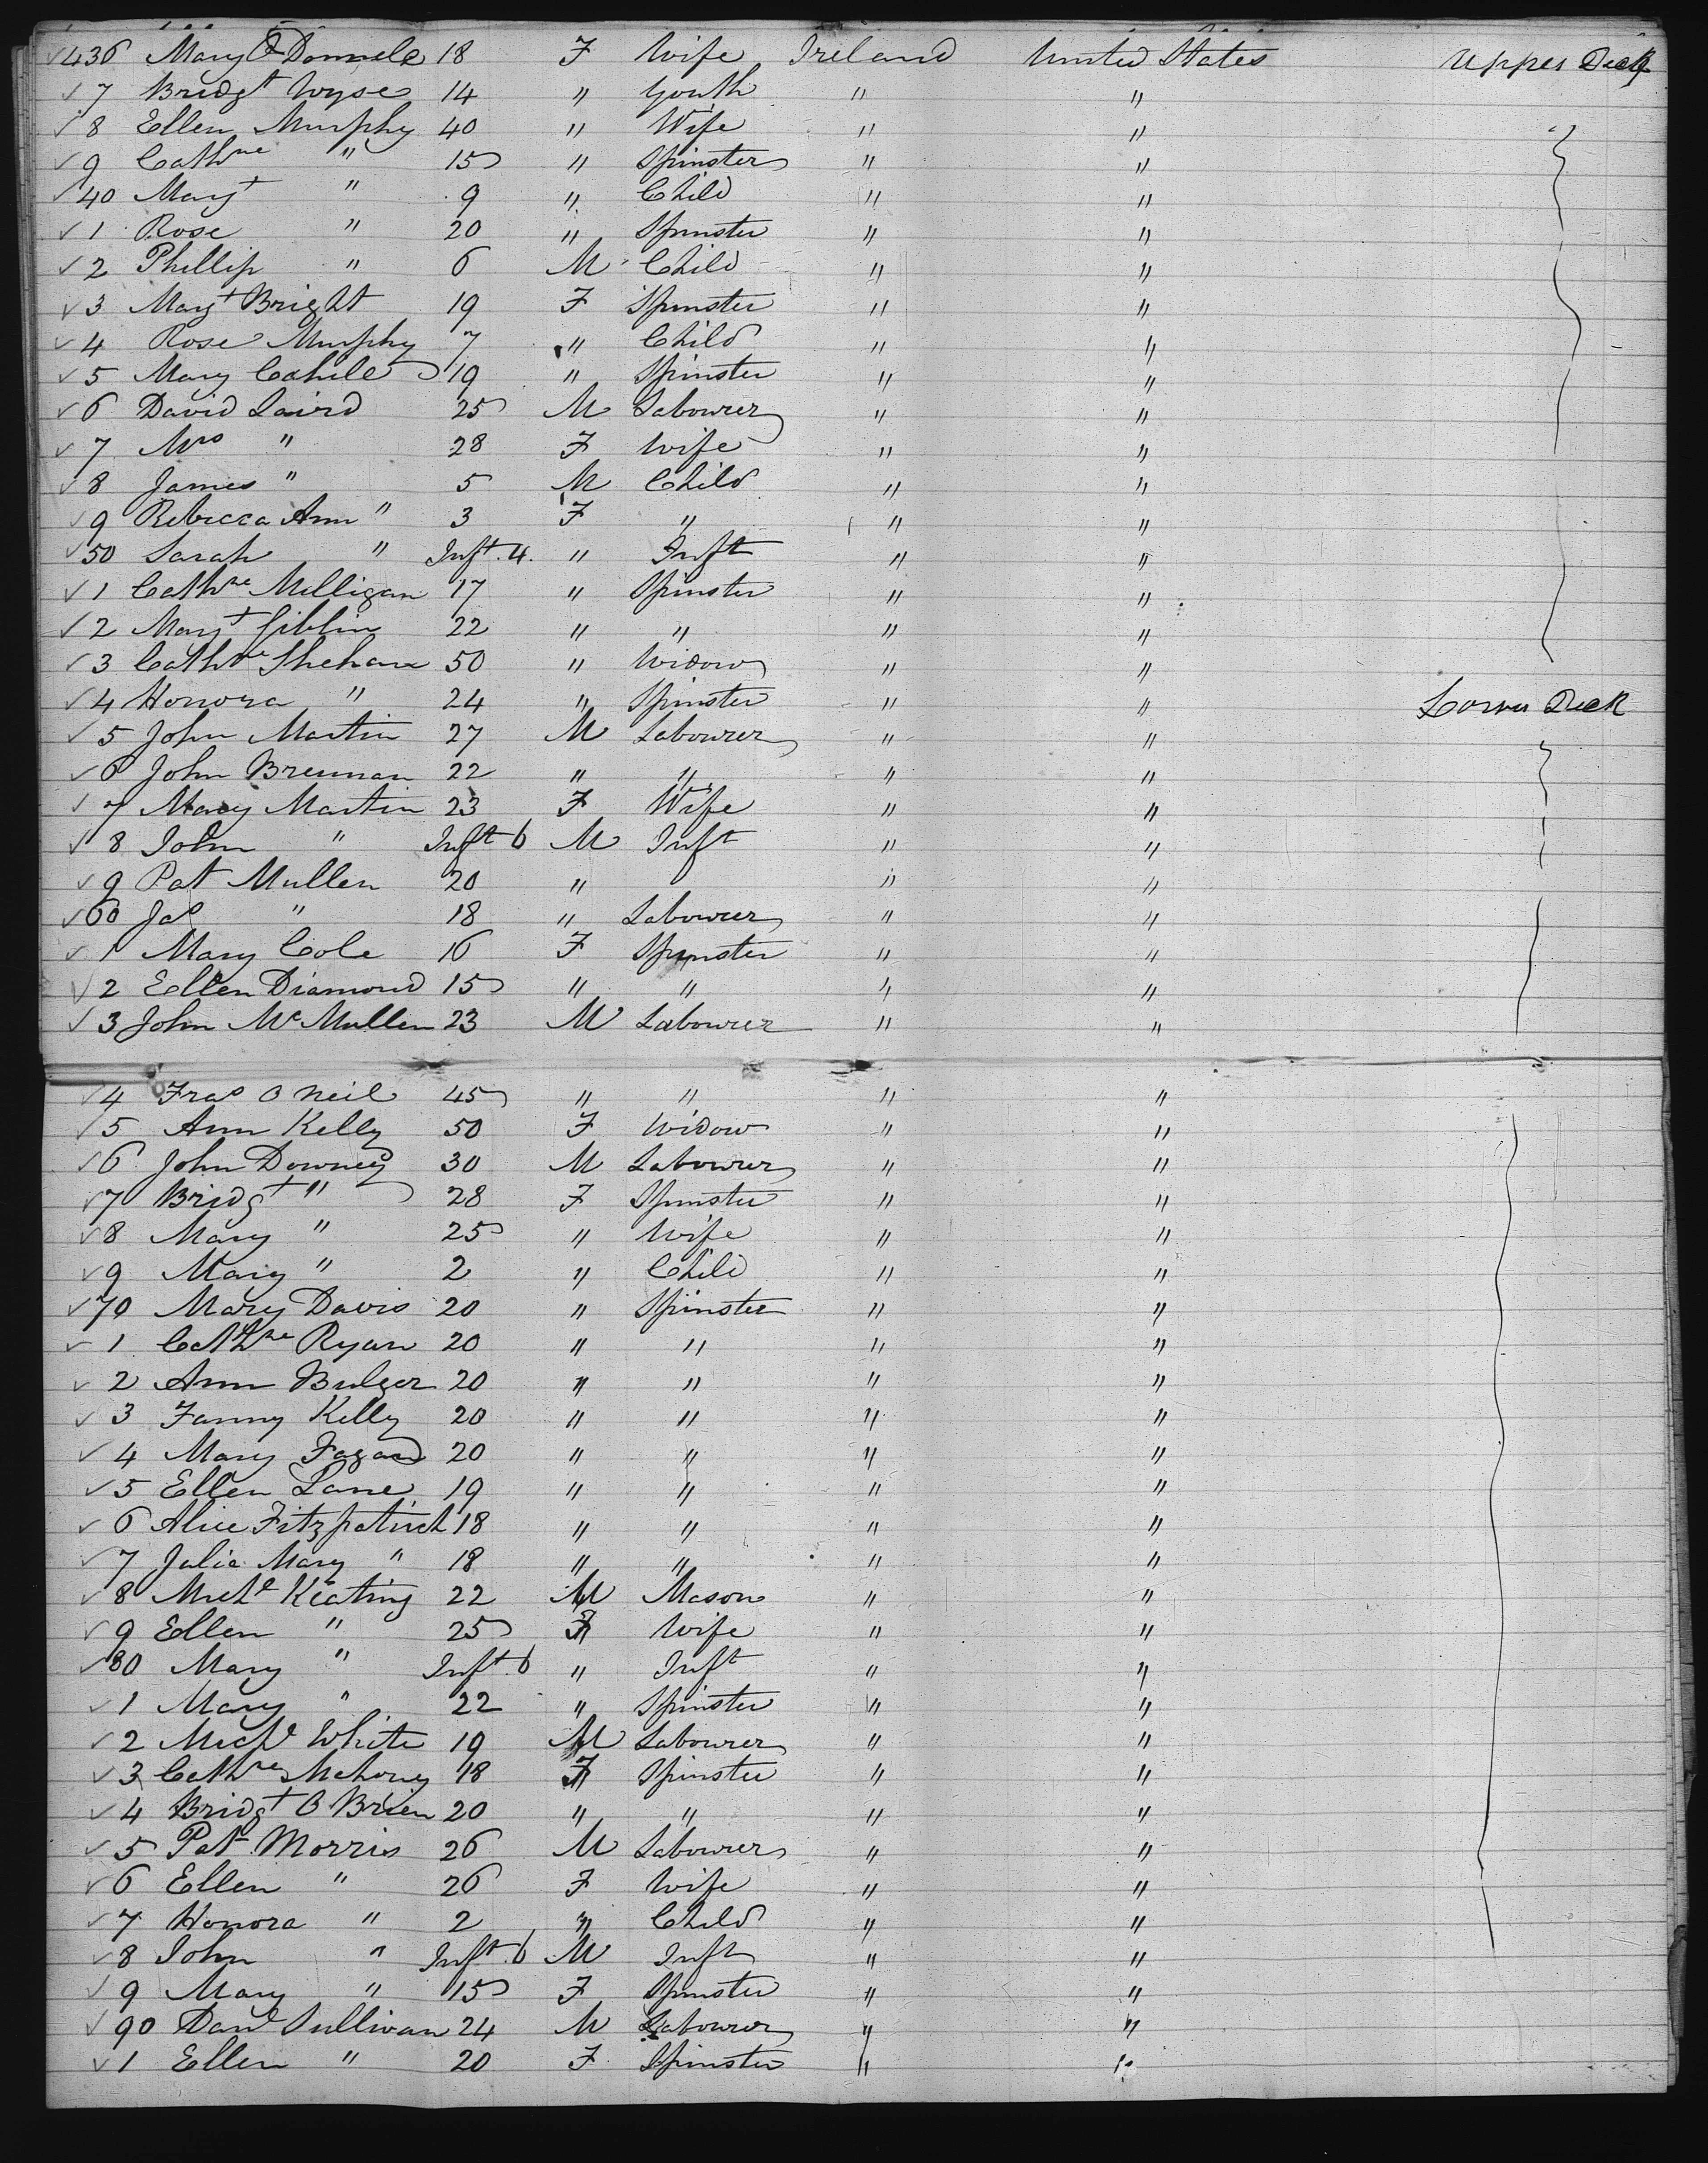 436 Mary O Donnele 18 F Wife Ireland United States Upper Deck
7 Bridgt Wyse 14 " Youth " "
8 Ellen Murphy 40 " Wife " "
9 Cathne " 15 " Spinster " "
40 Margt " 9 " Child " "
1 Rose " 20 " Spinster " "
2 Phillip " 6 M Child " "
3 Margt Bright 19 F Spinster " "
4 Rose Murphy 7 " Child " "
5 Mary Cahile 19 " Spinster " "
6 David Laird 25 M Labourer " "
7 Mrs " 28 F Wife " "
8 James " 5 M Child " "
9 Rebecca Ann " 3 F " " "
50 Sarah " Inft. 4. " Inft " "
1 Cathne Milligan 17 " Spinster " "
2 Margt Giblin 22 " " " "
3 Cathne Shehan 50 " Widow " "
4 Honora " 24 " Spinster " " Lower Deck
5 John Martin 27 M Labourer " "
6 John Brennan 22 " " " "
7 Mary Martin 23 F Wife " "
8 John " Inft 6 M Inft " "
9 Pat Mullen 20 " " "
60 Jas " 18 " Labourer " "
1 Mary Cole 16 F Spinster " "
2 Ellen Diamond 15 " " " "
3 John Mc Mullen 23 M Labourer " "
4 Fras O Neil 45 " " " "
5 Ann Kelly 50 F Widow " "
6 John Downey 30 M Labourer " "
7 Bridgt " 28 F Spinster " "
8 Mary " 25 " Wife " "
9 Mary " 2 " Child " "
70 Mary Davis 20 " Spinster " "
1 Cathne Ryan 20 " " " "
2 Ann Bulger 20 " " " "
3 Fanny Kelly 20 " " " "
4 Mary Fagan 20 " " " "
5 Ellen Lane 19 " " " "
6 Alice Fitzpatrick 18 " " " "
7 Julia Mary " 18 " " " "
8 Michl Keating 22 M Mason " "
9 Ellen " 25 F Wife " "
80 Mary " Inft. 6 " Inft " "
1 Mary " 22 " Spinster " "
2 Michl White 19 M Labourer " "
3 Cathne Mahony 18 F Spinster " "
4 Bridgt O Brien 20 " " " "
5 Pat Morris 26 M Labourer " "
6 Ellen " 26 F Wife " "
7 Honora " 2 " Child " "
8 John " Inft. 6 M Inft " "
9 Mary " 15 F Spinster " "
90 Danl Sullivan 24 M Labourer " "
1 Ellen " 20 F Spinster " "